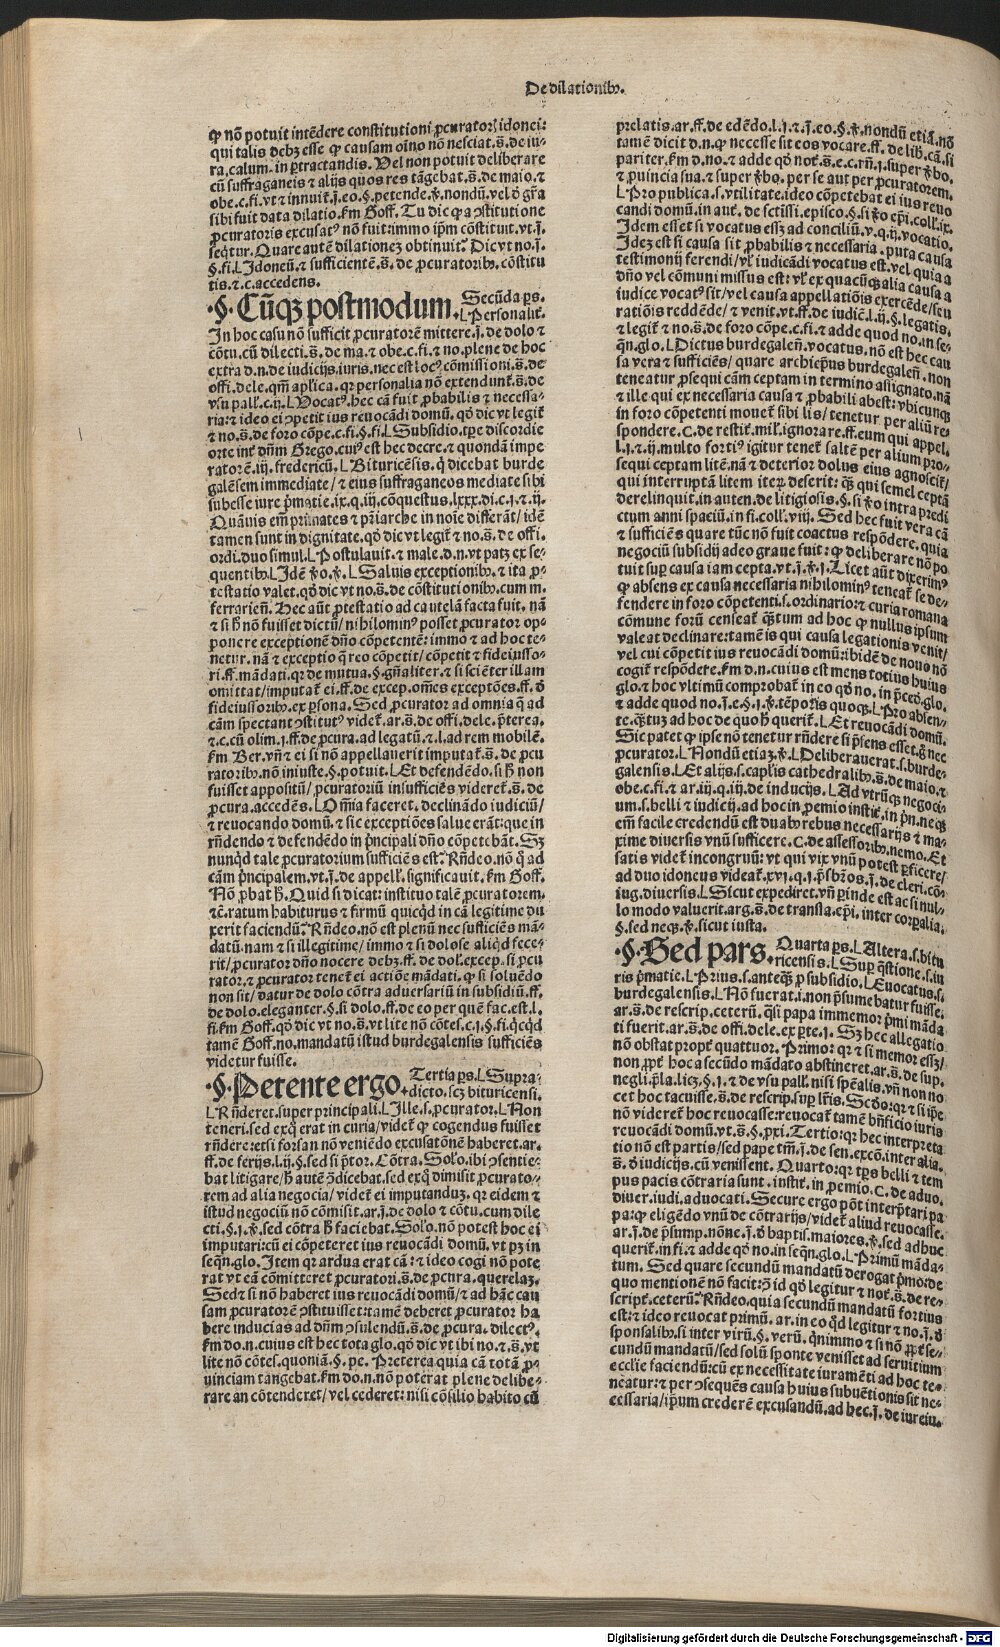 De dilationibꝰ.
ꝙ nō potuit intēdere constitutioni ꝓcuratorꝭ idonei:
qui talis debꝫ esse ꝙ causam oīno nō nesciat. s̄. de iu-
ra. calum. in ꝑtractandis. Vel non potuit deliberare
cū suffraganeis ⁊ alijs quos res tāgebat. s̄. de maio. ⁊
obe. c. fi. vt ⁊ innuit᷑. j̄. eo. §. petende. ꝟ. nondū. vel ꝺ gr̄a
sibi fuit data dilatio. ẜm Goff. Tu dic ꝙ a ꝯstitutione
ꝓcuratoris excusatꝰ nō fuit: immo ip̄m cōstituit. vt. j̄.
seq̄tur. Quare autē dilationeꝫ obtinuit? Dic vt no. j̄.
§. fi. L Idoneū. ⁊ sufficientē. s̄. de ꝓcuratoribꝰ. cōstitu
tis. ⁊. c. accedens.
·§· Cūqꝫ postmodum. Secūda ꝑs.
L Personalit᷑.
In hoc casu nō sufficit ꝓcuratorē mittere. j̄. de dolo ⁊
cōtu. cū dilecti. s̄. de ma. ⁊ obe. c. fi. ⁊ no. plene de hoc
extra d. n. de iudicijs. iuris. nec est locꝰ cōmissioni. s̄. de
offi. dele. qm̄ aplica. qꝛ personalia nō extendunt᷑. s̄. de
vsu pall. c. ij. L Vocatꝰ. hec cā fuit ꝓbabilis ⁊ necessa-
ria: ⁊ ideo ei ꝯpetit ius reuocādi domū. qō dic vt legit᷑
⁊ no. s̄. de foro cōpe. c. fi. §. fi. L Subsidio. tꝑe discordie
orte int᷑ dn̄m Grego. cuiꝰ est hec decre. ⁊ quondā impe
ratorē. iij. fredericū. L Bituricēsis. q̄ dicebat burde
galēsem immediate/ ⁊ eius suffraganeos mediate sibi
subesse iure p̄matie. ix. q. iij. cōquestus. lxxx. di. c. j. ⁊. ij.
Quāuis em̄ primates ⁊ pr̄iarche in noīe differāt/ idē
tamen sunt in dignitate. qō dic vt legit᷑ ⁊ no. s̄. de offi.
ordi. duo simul. L Postulauit. ⁊ male. d. n. vt patꝫ ex se-
quentibꝰ. L Idē ꝟo. ꝟ. L Saluis exceptionibꝰ. ⁊ ita ꝓ-
testatio valet. qō dic vt no. s̄. de cōstitutionibꝰ. cum m.
ferrarien̄. Hec aūt ꝓtestatio ad cautelā facta fuit. nā
⁊ si h̄ nō fuisset dictū/ nihilominꝰ posset ꝓcurator op-
ponere exceptionē dn̄o cōpetentē: immo ⁊ ad hoc te-
netur. nā ⁊ exceptio q̄ reo cōpetit/ cōpetit ⁊ fideiusso-
ri. ff. mādati. qꝛ de mutua. §. gn̄aliter. ⁊ si sciēter illam
omittat/ imputat᷑ ei. ff. de excep. om̄es exceptōes. ff. ꝺ
fideiussoribꝰ. ex ꝑsona. Sed ꝓcurator ad omnia q̄ ad
cām spectant ꝯstitutꝰ videt᷑. ar. s̄. de offi. dele. p̄terea.
⁊. c. cū olim. j. ff. de ꝓcura. ad legatū. ⁊. l. ad rem mobilē.
ẜm Ber. vn̄ ⁊ ei si nō appellauerit imputat᷑. s̄. de ꝓcu
ratoribꝰ. nō iniuste. §. potuit. L Et defendēdo. si h̄ non
fuisset appositū/ ꝓcuratoriū insufficiēs videret᷑. s̄. de
ꝓcura. accedēs. L Om̄ia faceret. declināndo iudiciū/
⁊ reuocando domū. ⁊ sic exceptiōes salue erāt: que in
rn̄dendo ⁊ defendēdo in p̄ncipali dn̄o cōpetebāt. Sꝫ
nunq̄d tale ꝓcuratorium sufficiēs est? Rn̄deo. nō q̄ ad
cām p̄ncipalem. vt. j̄. de appell. significauit. ẜm Goff.
Nō ꝓbat h̄. Quid si dicat: instituo talē ꝓcuratorem
⁊c̄. ratum habiturus ⁊ firmū quicq̄d in cā legitime du
xerit faciendū? Rn̄deo. nō est plenū nec sufficiēs mā-
datū. nam ⁊ si illegitime/ immo ⁊ si dolose aliq̄d fece-
rit/ ꝓcurator dn̄o nocere debꝫ. ff. de dol. excep. si ꝓcu
rator. ⁊ ꝓcurator tenet᷑ ei actiōe mādati. ꝙ si soluēdo
non sit/ datur de dolo cōtra aduersariū in subsidiū. ff.
de dolo. eleganter. §. si dolo. ff. de eo per quē fac. est. l.
fi. ẜm Goff. qō dic vt no. s̄. vt lite nō cōtes. c. j. §. fi. q̄cq̄d
tamē Goff. no. mandatū istud burdegalensis sufficiēs
videtur fuisse.
·§· Petente ergo. Tertia ꝑs. L Supra-
dicto. scꝫ bituricensi.
L Rn̄deret. super principali. L Ille. s. ꝓcurator. L Non
teneri. sed exq̄ erat in curia/ videt᷑ ꝙ cogendus fuisset
rn̄dere: etsi forsan nō veniēdo excusatōnē haberet. ar.
ff. de ferijs. l. ij. §. sed si p̄tor. Cōtra. Solo. ibi ꝯsentie-
bat litigare/ h̄ autē ꝯdicebat. sed exq̄ dimisit ꝓcurato-
rem ad alia negocia/ videt᷑ ei imputanduꝫ. qꝛ eidem ⁊
istud negociū nō cōmisit. ar. j̄. de dolo ⁊ cōtu. cum dile
cti. §. j. ꝟ. sed cōtra h̄ faciebat. Solo. nō potest hoc ei
imputari: cū ei cōpeteret ius reuocādi domū. vt pꝫ in
seq̄n. glo. Item qꝛ ardua erat cā: ⁊ ideo cogi nō pote
rat vt eā cōmitteret ꝓcuratori. s̄. de ꝓcura. querelaꝫ.
Sed ⁊ si nō haberet ius reuocādi domū/ ⁊ ad hāc cau
sam ꝓcuratorē ꝯstituisset: tamē deberet ꝓcurator ha
bere inducias ad dn̄m ꝯsulendū. s̄. de ꝓcura. dilectꝰ.
ẜm do. n. cuius est hec tota glo. qō dic vt ibi no. ⁊. s̄. vt
lite nō cōtes. quoniā. §. pe. Preterea quia cā totā ꝓ-
uinciam tāngebat. ẜm do. n. nō poterat plene delibe-
rare an cōtenderet/ vel cederet: nisi cōsilio habito cū
prelatis. ar. ff. de edēdo. l. j. ⁊. j̄. eo. §. ꝟ. nondū etiā. nō
tamē dicit d. n. ꝙ necesse sit eos vocare. ff. de lib. cā. si
pariter. ẜm d. no. ⁊ adde qō not᷑. s̄. e. c. rn̄. j. super ꝟbo.
⁊ ꝓuincia sua. ⁊ super ꝟbo. per se aut per ꝓcuratorem.
L Pro publica. s. vtilitate. ideo cōpetebat ei ius reuo
candi domū. in aut᷑. de sctīssi. episco. §. si ꝟo ep̄i. coll. ix.
Idem esset si vocatus esset ad conciliū. v. q. ij. vocatio.
Ideꝫ est si causa sit ꝓbabilis ⁊ necessaria. puta causa
testimonij ferendi/ vl᷑ iudicādi vocatus est. vel quia a
dn̄o vel cōmuni missus est: vl᷑ ex quacūqꝫ alia causa a
iudice vocatꝰ sit/ vel causa appellatiōis exercēde/ seu
ratiōis reddēde/ ⁊ venit. vt. ff. de iudic̄. l. ij. §. legatis.
⁊ legit᷑ ⁊ no. s̄. de foro cōpe. c. fi. ⁊ adde quod no. in se-
q̄n. glo. L Dictus burdegalen̄. vocatus. nō est hec cau
sa vera ⁊ sufficiēs/ quare archiep̄us burdegalen̄. non
teneatur ꝓsequi cām ceptam in termino assignato. nā
⁊ ille qui ex necessaria causa ⁊ ꝓbabili abest: vbicunqꝫ
in foro cōpetenti mouet᷑ sibi lis/ tenetur per aliū re-
spondere. C. de restit᷑. mil᷑. ignorare. ff. eum qui appel.
l. j. ⁊. ij. multo fortiꝰ igitur tenet᷑ saltē per alium pro-
sequi ceptam litē. nā ⁊ deterior dolus eius agnoscit᷑/
qui interruptā litem iteꝝ deserit: q̄ꝫ qui semel ceptā
derelinquit. in auten. de litigiosis. §. si ꝟo intra predi
ctum anni spaciū. in fi. coll᷑. viij. Sed hec fuit vera cā
⁊ sufficiēs quare tūc nō fuit coactus respōdere. quia
negociū subsidij adeo graue fuit: ꝙ deliberare nō po
tuit suꝑ causa iam cepta. vt. j̄. ꝟ. j. Licet aūt dixerimꝰ
ꝙ absens ex causa necessaria nihilominꝰ teneat᷑ se de-
fendere in foro cōpetenti. s. ordinario: ⁊ curia romana
cōmune forū censeat᷑ q̄ꝫtum ad hoc ꝙ nullus ipsum
valeat declinare: tamē is qui causa legationis venit/
vel cui cōpetit ius reuocādi domū: ibidē de nouo nō
cogit᷑ respōdere. ẜm d. n. cuius est mens totius huius
glo. ⁊ hoc vltimū comprobat᷑ in eo qō no. in p̄ced. glo.
⁊ adde quod no. j̄. e. §. j. ꝟ. tēporis quoqꝫ. L Pro absen-
te. q̄ꝫtuꝫ ad hoc de quo h̄ querit᷑. L Et reuocādi domū.
Sic patet ꝙ ipse nō tenetur rn̄dere si p̄sens esset. q̄ nec
ꝓcurator. L Nondū etiaꝫ. ꝟ. L Deliberauerat. s. burde-
galensis. L Et alijs. s. capl̄is cathedralibꝰ. s̄. de maio. ⁊
obe. c. fi. ⁊ ar. iij. q. iij. de inducijs. L Ad vtrūqꝫ negoci-
um. s. belli ⁊ iudicij. ad hoc in ꝓemio instit᷑. in pn̄. neqꝫ
em̄ facile credendū est duabꝰ rebus necessarijs ⁊ ma-
xime diuersis vnū sufficere. C. de assessoribꝰ. nemo. Et
satis videt᷑ incongruū: vt qui vix vnū potest ꝑficere/
ad duo idoneus videat᷑. xvj. q. j. p̄sbr̄os. j̄. de cleri. cō-
iug. diuersis. L Sicut expediret. vn̄ ꝑinde est ac si nul-
lo modo valuerit. arg. s̄. de transla. ep̄i. inter corꝑalia.
§. sed neqꝫ. ꝟ. sicut iusta.
·§· Sed pars. Quarta ꝑs. L Altera. s. bitu
ricensis. L Suꝑ q̄stione. s. iu
ris p̄matie. L Prius. s. anteq̄ꝫ ꝓ subsidio. L Euocatus. s.
burdegalensis. L Nō fuerat. i. non p̄sumebatur fuisse.
ar. s̄. de rescrip. ceterū. q̄si papa immemor p̄mi māda
ti fuerit. ar. s̄. de offi. dele. ex ꝑte. j. Sꝫ hec allegatio
nō obstat propt᷑ quattuor. Primo: qꝛ ⁊ si memor esset/
non ꝓpt᷑ hoc a secūdo mādato abstineret. ar. s̄. de sup.
negli. p̄la. licꝫ. §. j. ⁊ de vsu pall᷑. nisi sp̄ealis. vn̄ non no
cet hoc tacuisse. s̄. de rescrip. suꝑ lr̄is. Scd̄o: qꝛ ⁊ si ip̄e
nō videret᷑ hoc reuocasse: reuocat᷑ tamē bn̄ficio iuris
reuocādi domū. vt. s̄. §. ꝓxi. Tertio: qꝛ hec interpreta
tio nō est partis/ sed pape tm̄. j̄. de sen. excō. inter alia.
s̄. ꝺ iudicijs. cū venissent. Quarto: qꝛ tꝑs belli ⁊ tem
pus pacis cōtraria sunt. instit᷑. in ꝓemio. C. de aduo.
diuer. iudi. aduocati. Secure ergo pōt interp̄tari pa
pa: ꝙ eligēdo vnū de cōtrarijs/ videt᷑ aliud reuocasse.
ar. j̄. de p̄sump. nōne. j̄. ꝺ baptis. maiores. ꝟ. sed adhuc
querit᷑. in fi. ⁊ adde qō no. in seq̄n. glo. L Primū māda-
tum. Sed quare secundū mandatū derogat p̄mo: de
quo mentionē nō facit: ꝯ id qō legitur ⁊ not᷑. s̄. de re-
script᷑. ceterū? Rn̄deo. quia secundū mandatū fortius
est: ⁊ ideo reuocat primū. ar. in eo q̄d legitur ⁊ no. j̄. ꝺ
sponsalibꝰ. si inter virū. §. verū. q̄nimmo ⁊ si nō ꝓpt᷑ se-
cundū mandatū/ sed solū sponte venisset ad seruitium
ecclīe faciendū: cū ex necessitate iuramēti ad hoc te-
neatur: ⁊ per ꝯsequēs causa huius subuētionis sit ne-
cessaria/ ip̄um crederē excusandū. ad hec. j̄. de iureiu.
Digitalisierung gefördert durch die Deutsche Forschungsgemeinschaft - DFG